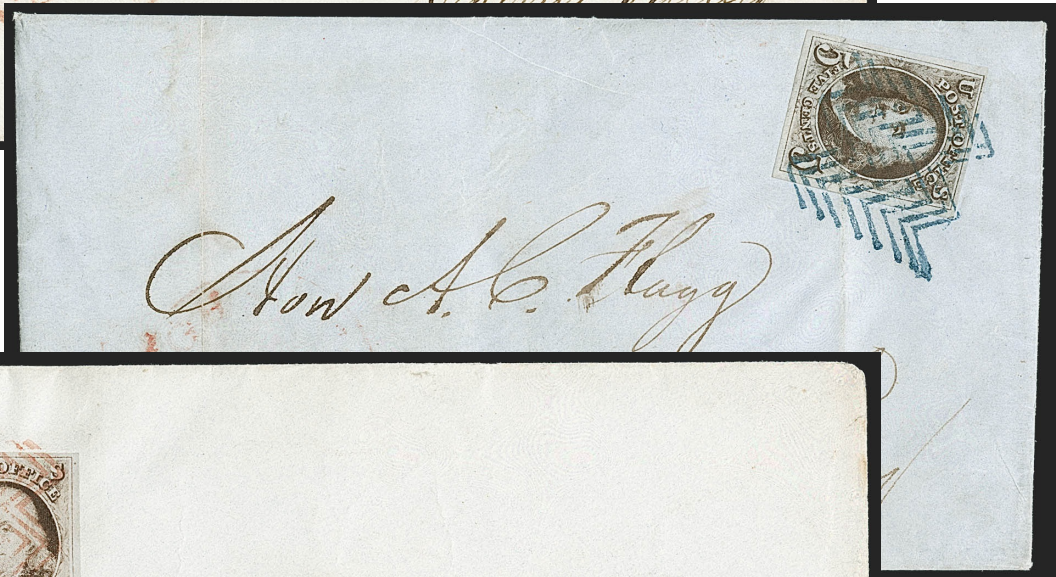 U POST OFFICE S
5 FIVE CENTS 5
Hon A. C. Flagg
OFFICE S